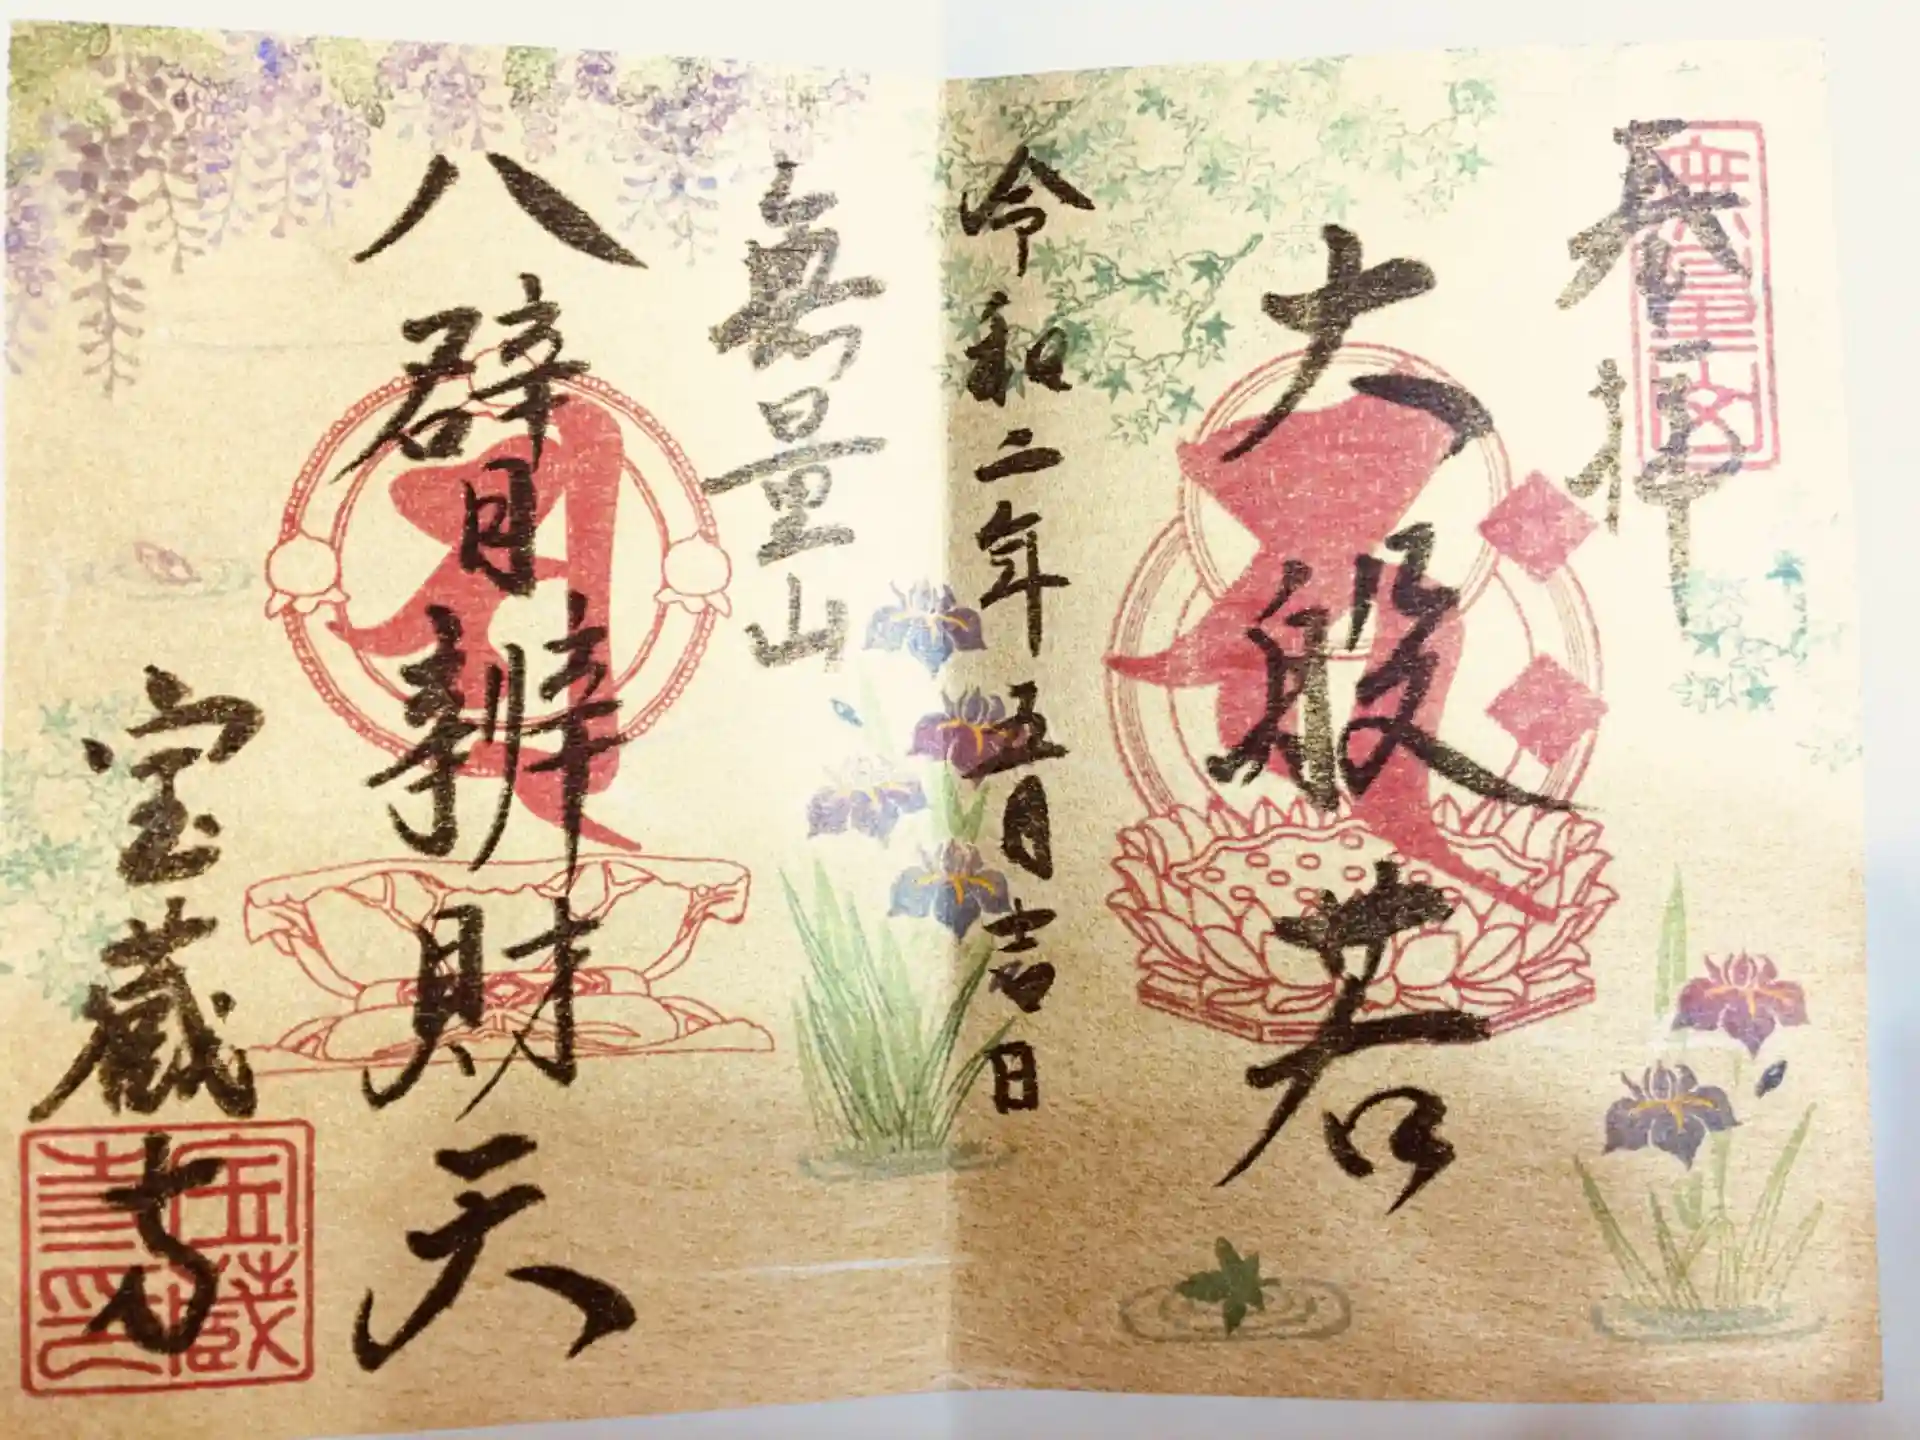 奉拝
無量山
大般若
令和二年五月吉日
無量山
八臂辨財天
宝蔵寺
宝蔵寺印